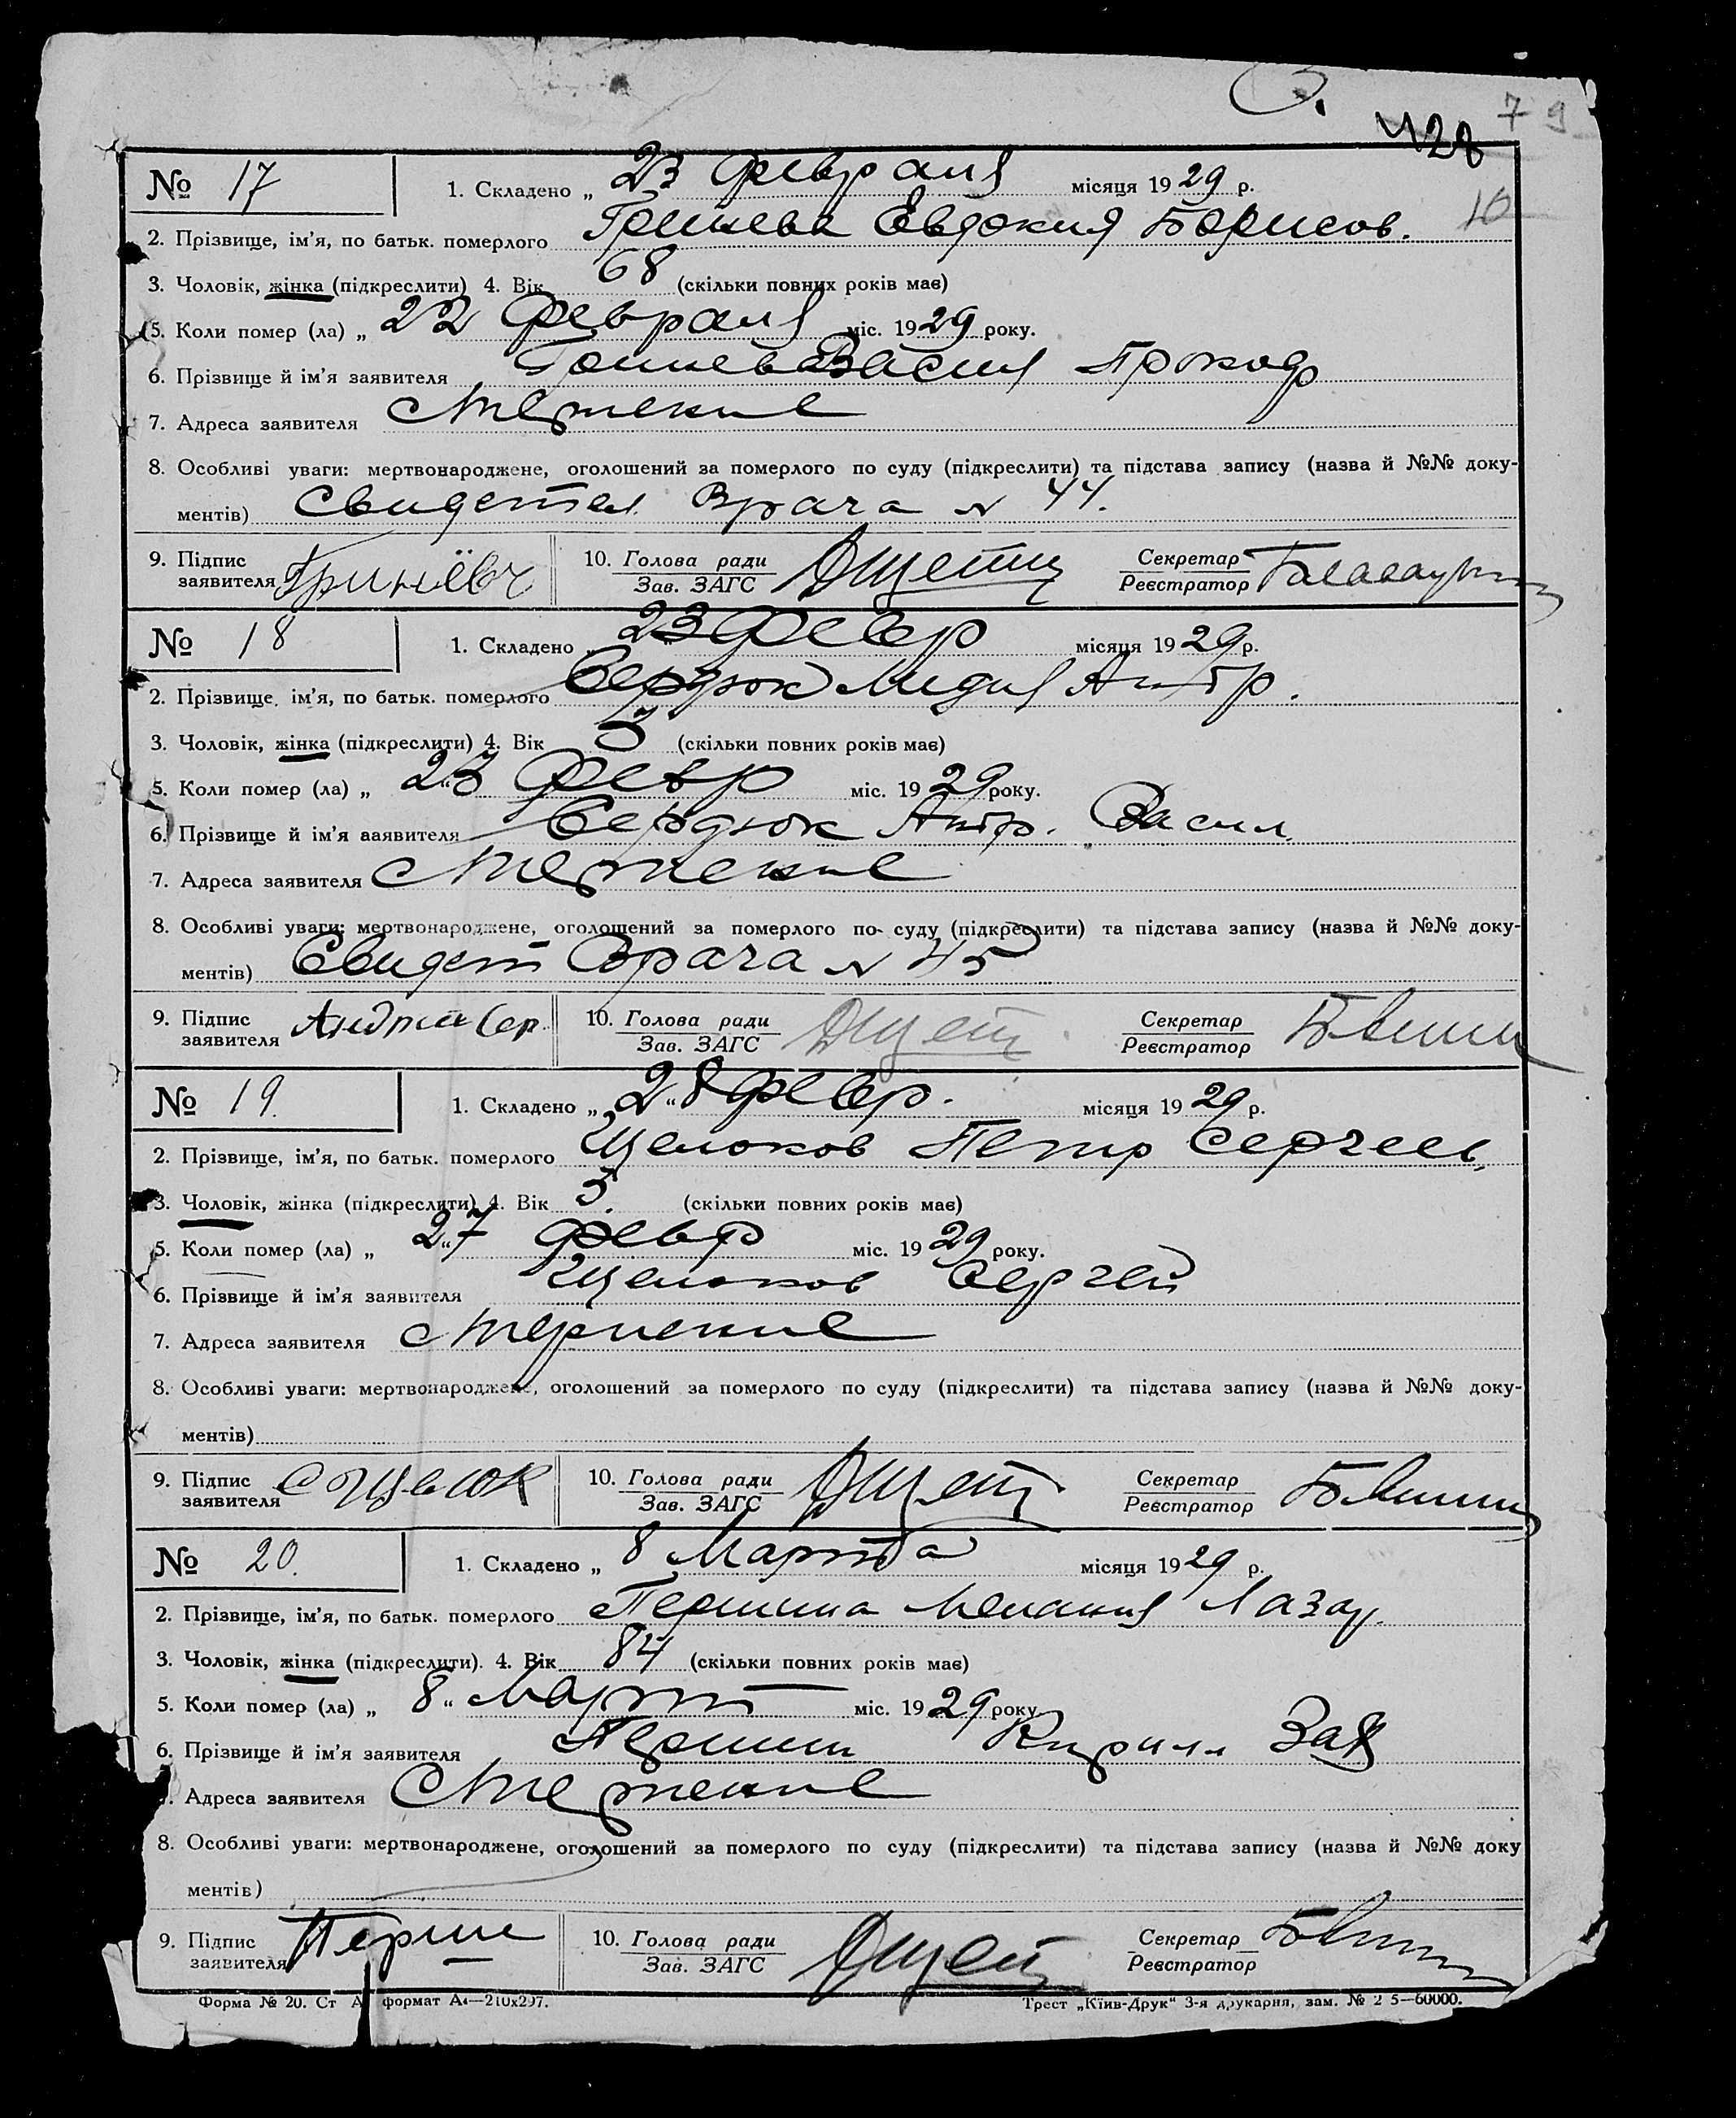 З.
428 79
10
№ 17 1. Складено „ 23 Февраля місяця 1929 р.
2. Прізвище, ім’я, по батьк. померлого Гринева Евдокия Борисов.
3. Чоловік, жінка (підкреслити) 4. Вік 68 (скільки повних років має)
5. Коли помер (ла) „ 22 Февраля міс. 1929 року.
6. Прізвище й ім’я заявителя Гринева Васил Прокоф
7. Адреса заявителя
8. Особливі уваги: мертвонароджене, оголошений за померлого по суду (підкреслити) та підстава запису (назва й №№ доку-
ментів) Свидетел. Врача N 44.
9. Підпис заявителя 10. Голова ради Зав. ЗАГС Секретар Реєстратор
№ 18 1. Складено „ 23 Февр місяця 1929 р.
2. Прізвище, ім’я, по батьк. померлого Сердюк Лидия
3. Чоловік, жінка (підкреслити) 4. Вік (скільки повних років має)
5. Коли помер (ла) „ 23 Февр міс. 1929 року.
6. Прізвище й ім’я заявителя Сердюк Васил.
7. Адреса заявителя
8. Особливі уваги: мертвонароджене, оголошений за померлого по суду (підкреслити) та підстава запису (назва й №№ доку-
ментів) Свидет Врача N 45
9. Підпис заявителя Андрии Сер. 10. Голова ради Зав. ЗАГС Секретар Реєстратор
№ 19. 1. Складено „ 28 февр. місяця 1929 р.
2. Прізвище, ім’я, по батьк. померлого Щелоков Петр Сергеев.
3. Чоловік, жінка (підкреслити) 4. Вік 5. (скільки повних років має)
5. Коли помер (ла) „ 27 Февр міс. 1929 року.
6. Прізвище й ім’я заявителя Щелоков Сергей
7. Адреса заявителя
8. Особливі уваги: мертвонароджене, оголошений за померлого по суду (підкреслити) та підстава запису (назва й №№ доку-
ментів)
9. Підпис заявителя С Щелок 10. Голова ради Зав. ЗАГС Секретар Реєстратор
№ 20. 1. Складено „ 8 Марта місяця 1929 р.
2. Прізвище, ім’я, по батьк. померлого Першина Мелания Лазар.
3. Чоловік, жінка (підкреслити). 4. Вік 84 (скільки повних років має)
5. Коли помер (ла) „ 8 “ Март міс. 1929 року
6. Прізвище й ім’я заявителя Першин Кирилл Зах
Адреса заявителя
8. Особливі уваги: мертвонароджене, оголошений за померлого по суду (підкреслити) та підстава запису (назва й №№ доку
ментів)
9. Підпис заявителя Перши 10. Голова ради Зав. ЗАГС Секретар Реєстратор
Форма № 20. Ст А формат А4—210х297. Трест „Київ-Друк“ 3-я друкарня, зам. № 2 5—60000.